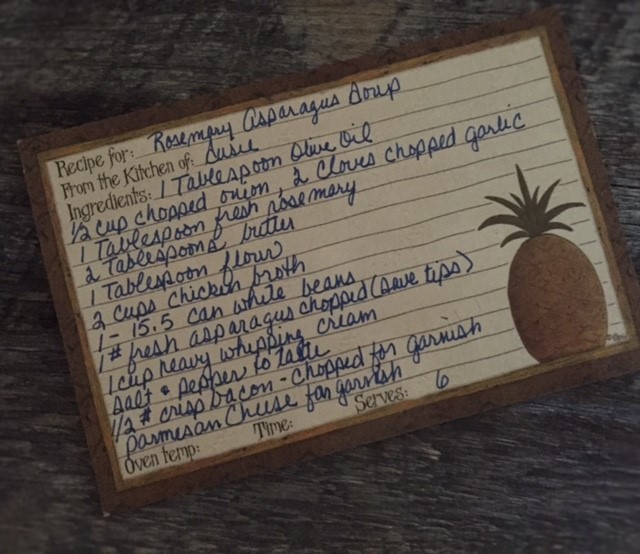 Recipe for: Rosemary Asparagus Soup
From the Kitchen of: Susie
Ingredients: 1 Tablespoon Olive Oil
1/2 cup chopped onion, 2 Cloves chopped garlic
1 Tablespoon fresh rosemary
2 Tablespoons butter
1 Tablespoon flour
2 cups chicken broth
1 - 15.5 can white beans
1 # fresh asparagus chopped (save tips)
1 cup heavy whipping cream
Salt & pepper to taste
1/2 # crisp bacon - chopped for garnish
parmesan cheese for garnish
Oven temp: Time: Serves: 6